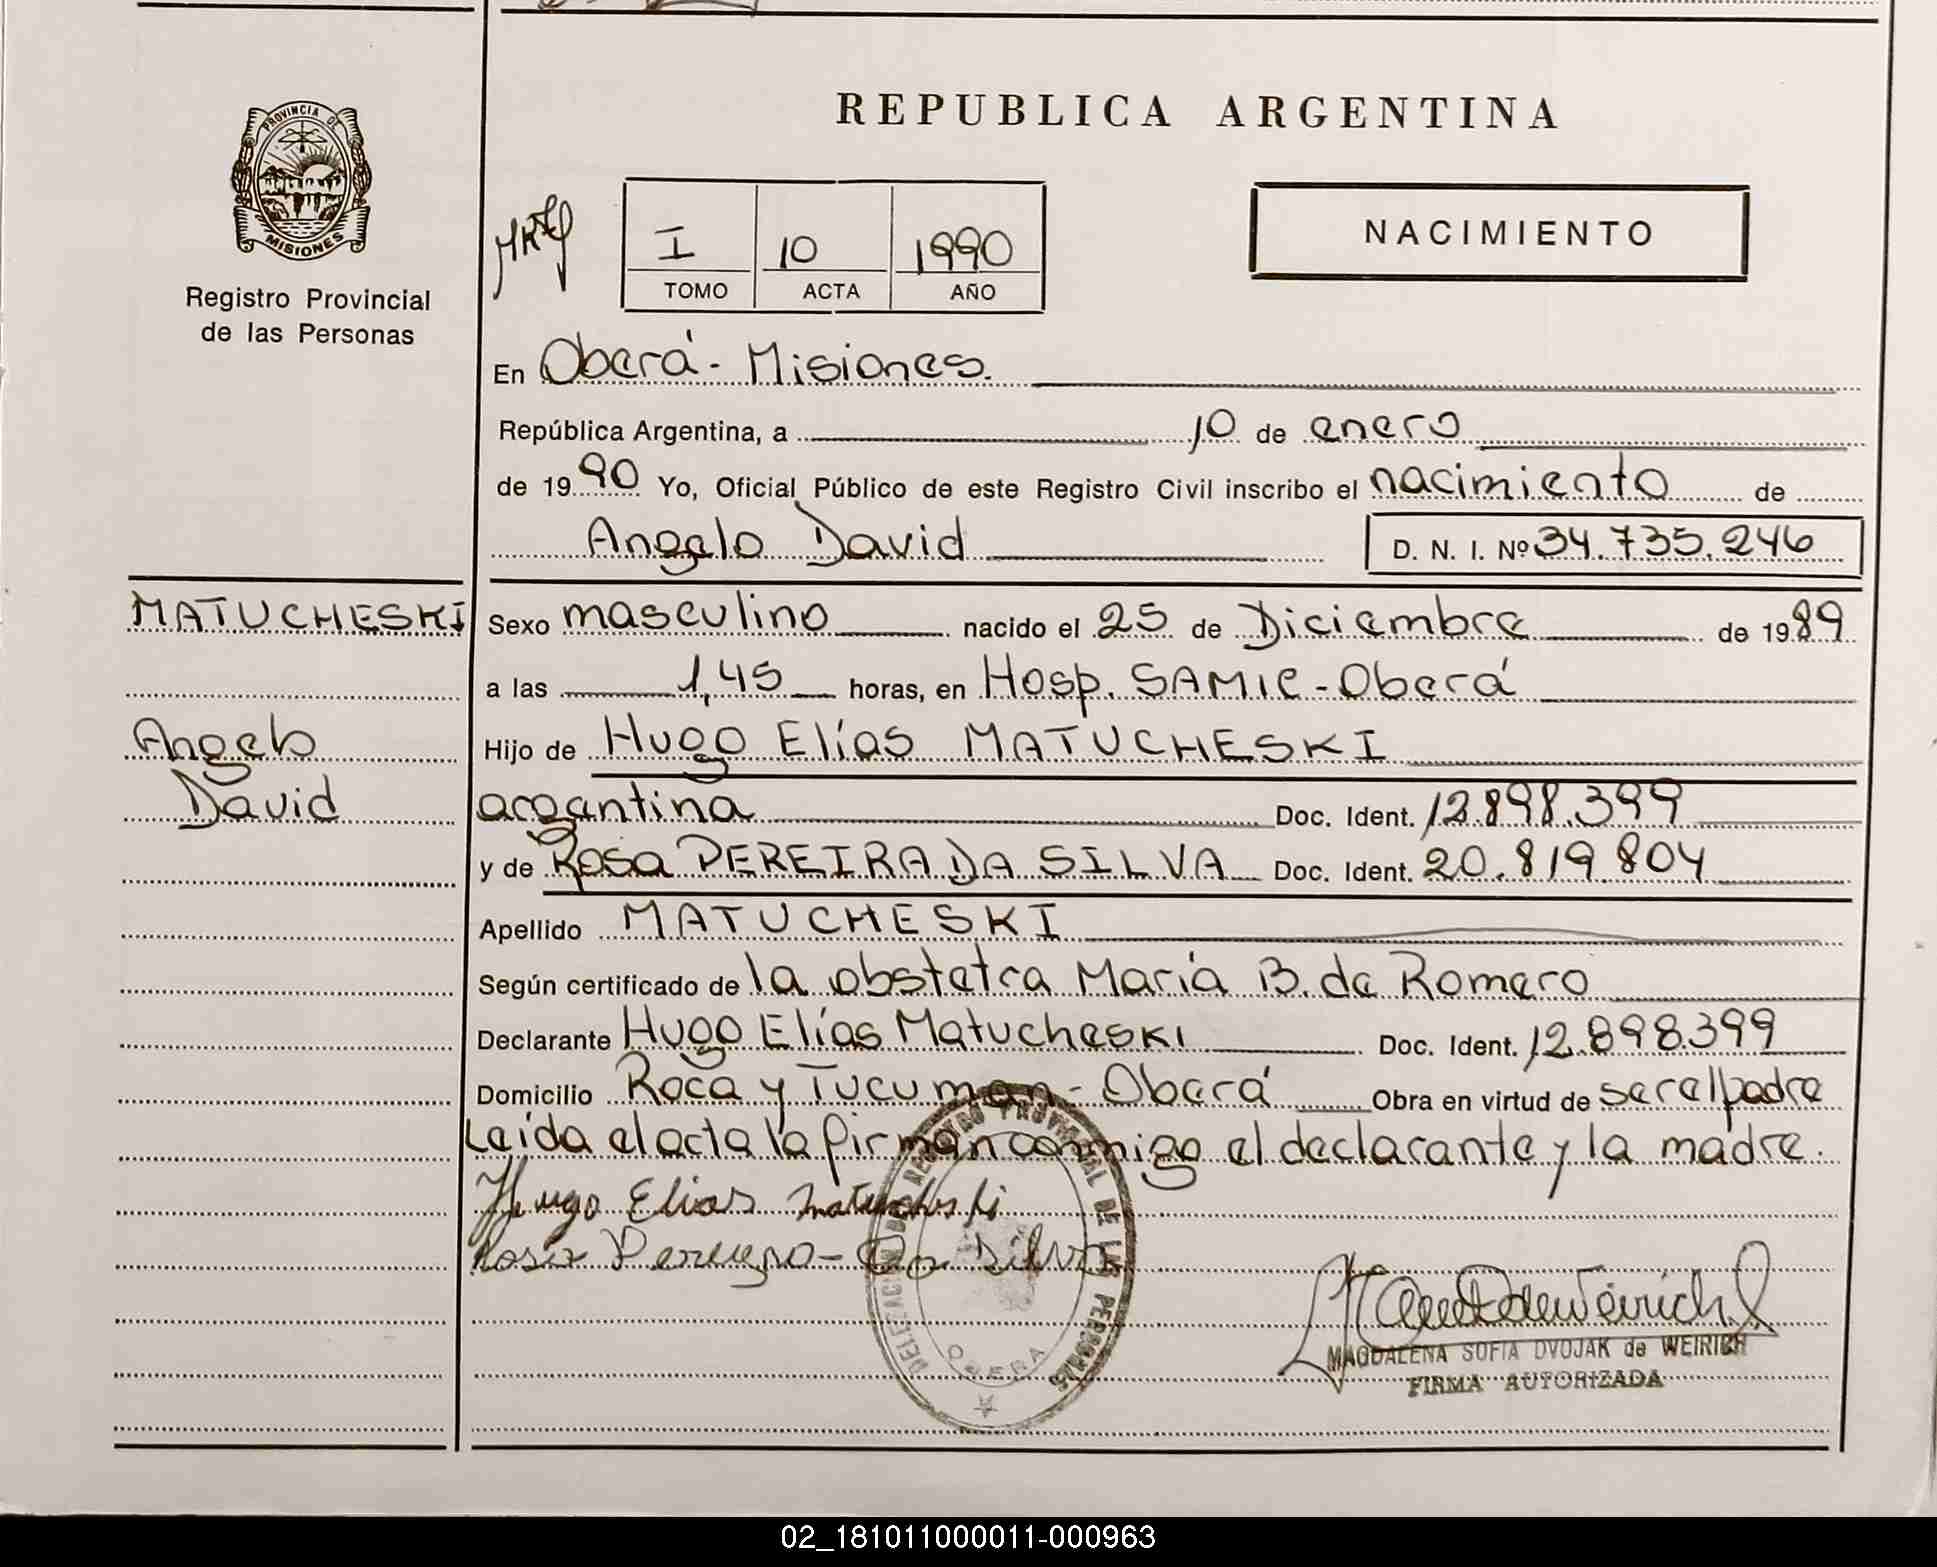 REPUBLICA ARGENTINA
PROVINCIA DE
MISIONES
Registro Provincial
de las Personas
I 10 1990
TOMO ACTA AÑO
NACIMIENTO
En Oberá - Misiones.
República Argentina, a 10 de enero
de 1990 Yo, Oficial Público de este Registro Civil inscribo el nacimiento de
Angelo David D. N. I. Nº 34.735.246
MATUCHESKI
Angelo
David
Sexo masculino nacido el 25 de Diciembre de 1989
a las 1,45 horas, en Hosp. SAMIC - Oberá
Hijo de Hugo Elías MATUCHESKI
argentina Doc. Ident. 12.898.399
y de Rosa PEREIRA DA SILVA Doc. Ident. 20.819.804
Apellido MATUCHESKI
Según certificado de la obstetra María B. de Romero
Declarante Hugo Elías Matucheski Doc. Ident. 12.898.399
Domicilio Roca y Tucuman - Oberá Obra en virtud de ser el padre
Leída el acta la firman conmigo el declarante y la madre.
Hugo Elias Matucheski
Rosa Da Silva
DELEGACION DEL REGISTRO PROVINCIAL DE LAS PERSONAS
OBERA
MAGDALENA SOFIA DVOJAK de WEIRICH
FIRMA AUTORIZADA
02_181011000011-000963